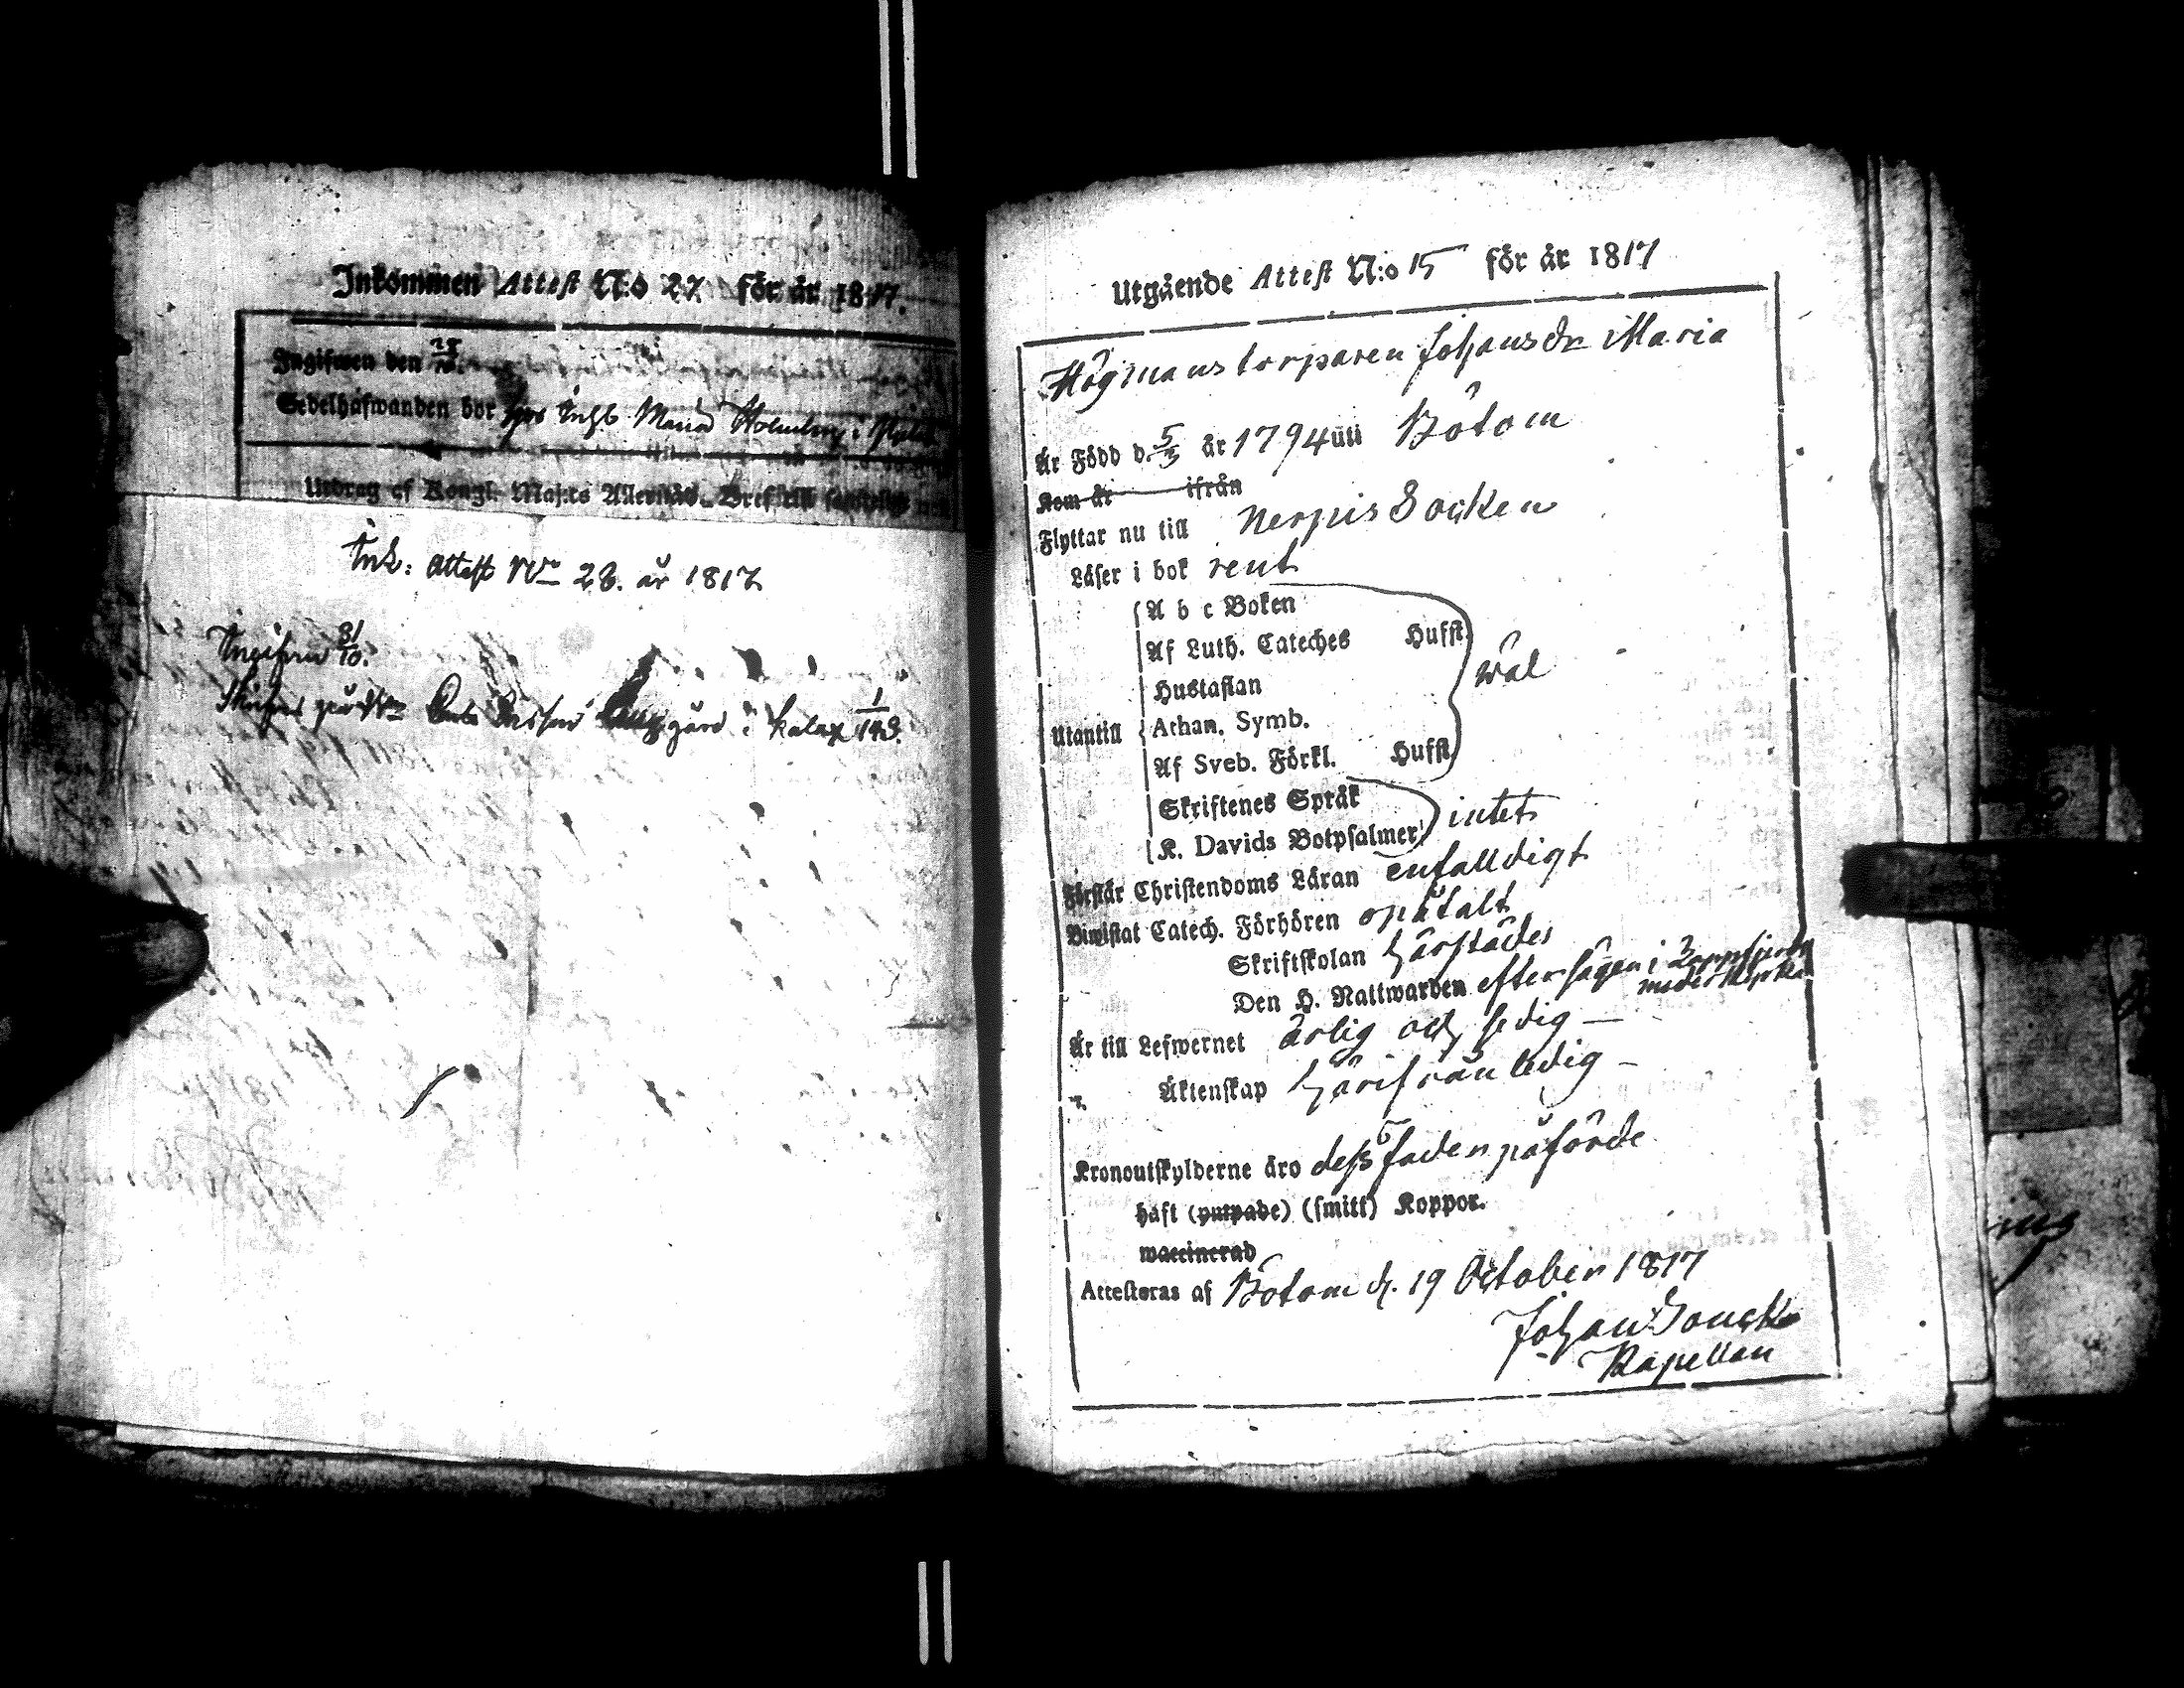 Inkommen Attest N:o 27 för år 1817.
Ingifwen den 28/10.
Sedelhafwanden bor hos Inhs Maria Holmberg i
Utdrag af Kongl. Maj:ts Allernåd. Bref till
Ink: Attest No 28. år 1817
Ingifwen 31/10.
gård i Kalax 1/143.
Utgående Attest N:o 15 för år 1817
Högmans torparen Johans dr Maria
Är Född d. 5/3 år 1794 uti Bötom
Kom år ifrån
Flyttar nu till Nerpis Socken
Läser i bok rent
A b c Boken
Af Luth. Cateches Hufst.
Hustaflan wäl
Utantill Athan. Symb.
Af Sveb. Förkl. Hufst.
Skriftenes Språk
K. Davids Botpsalmer intet
Förstår Christendoms Läran enfalldigt
Biwistat Catech. Förhören opåtalt
Skriftskolan härstädes
Den H. Nattwarden efter sägen i Lappfjerds
moderkyrka
Är till Lefwernet ärlig och sedig —
Äktenskap härifrån ledig —
Kronoutskylderne äro dess fader påförde
haft (ympade) (smitt) Koppor.
waccinerad
Attesteras af Bötom d. 19 October 1817
Johan Gonck
Kapellan